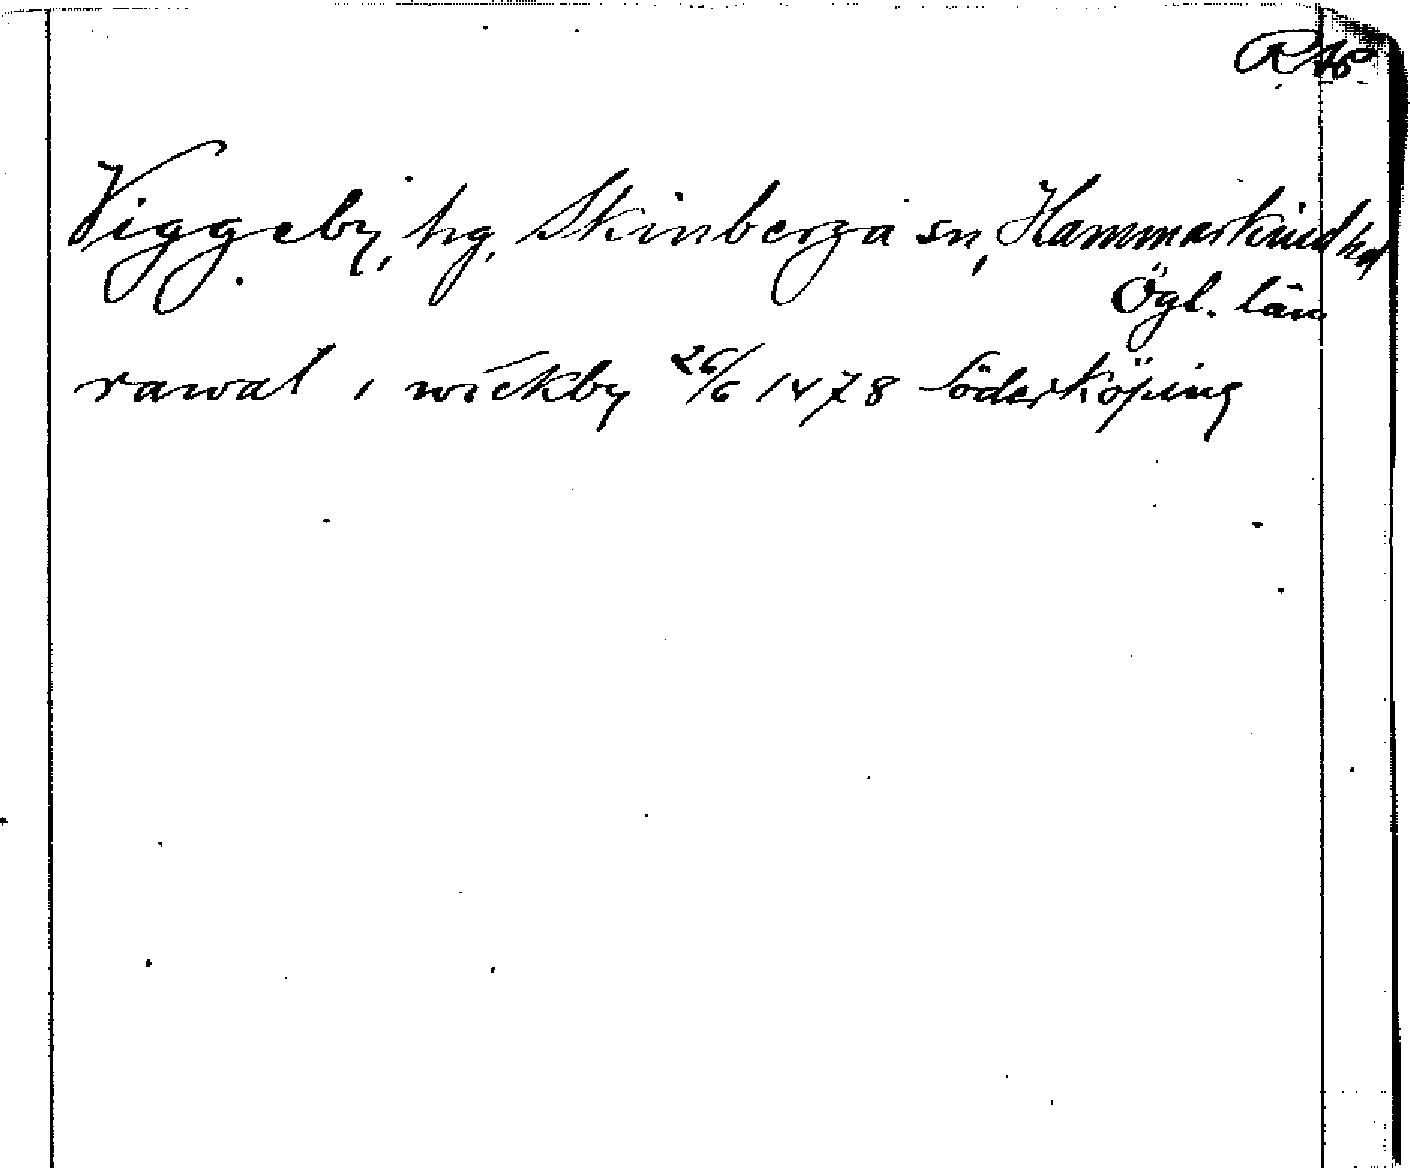 RAp
Viggeby, hg, Skönberga sn, Hammarkind hd
Ögl. län
rawal i wickby 26/6 1478 Söderköping